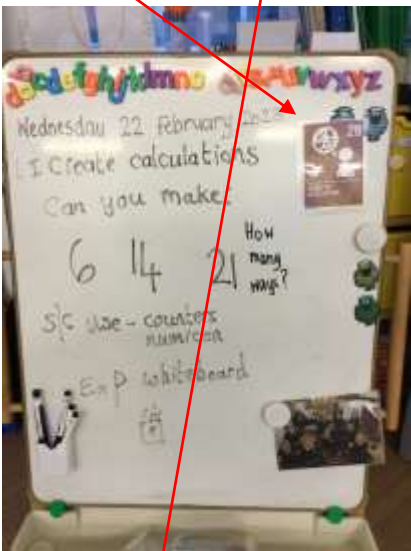 abcdefghijklmno pqrstuvwxyz
Wednesday 22 February
LI Create calculations
Can you make:
6 14 21 How many ways?
S/C use - counters
numicon
Exp whiteboard